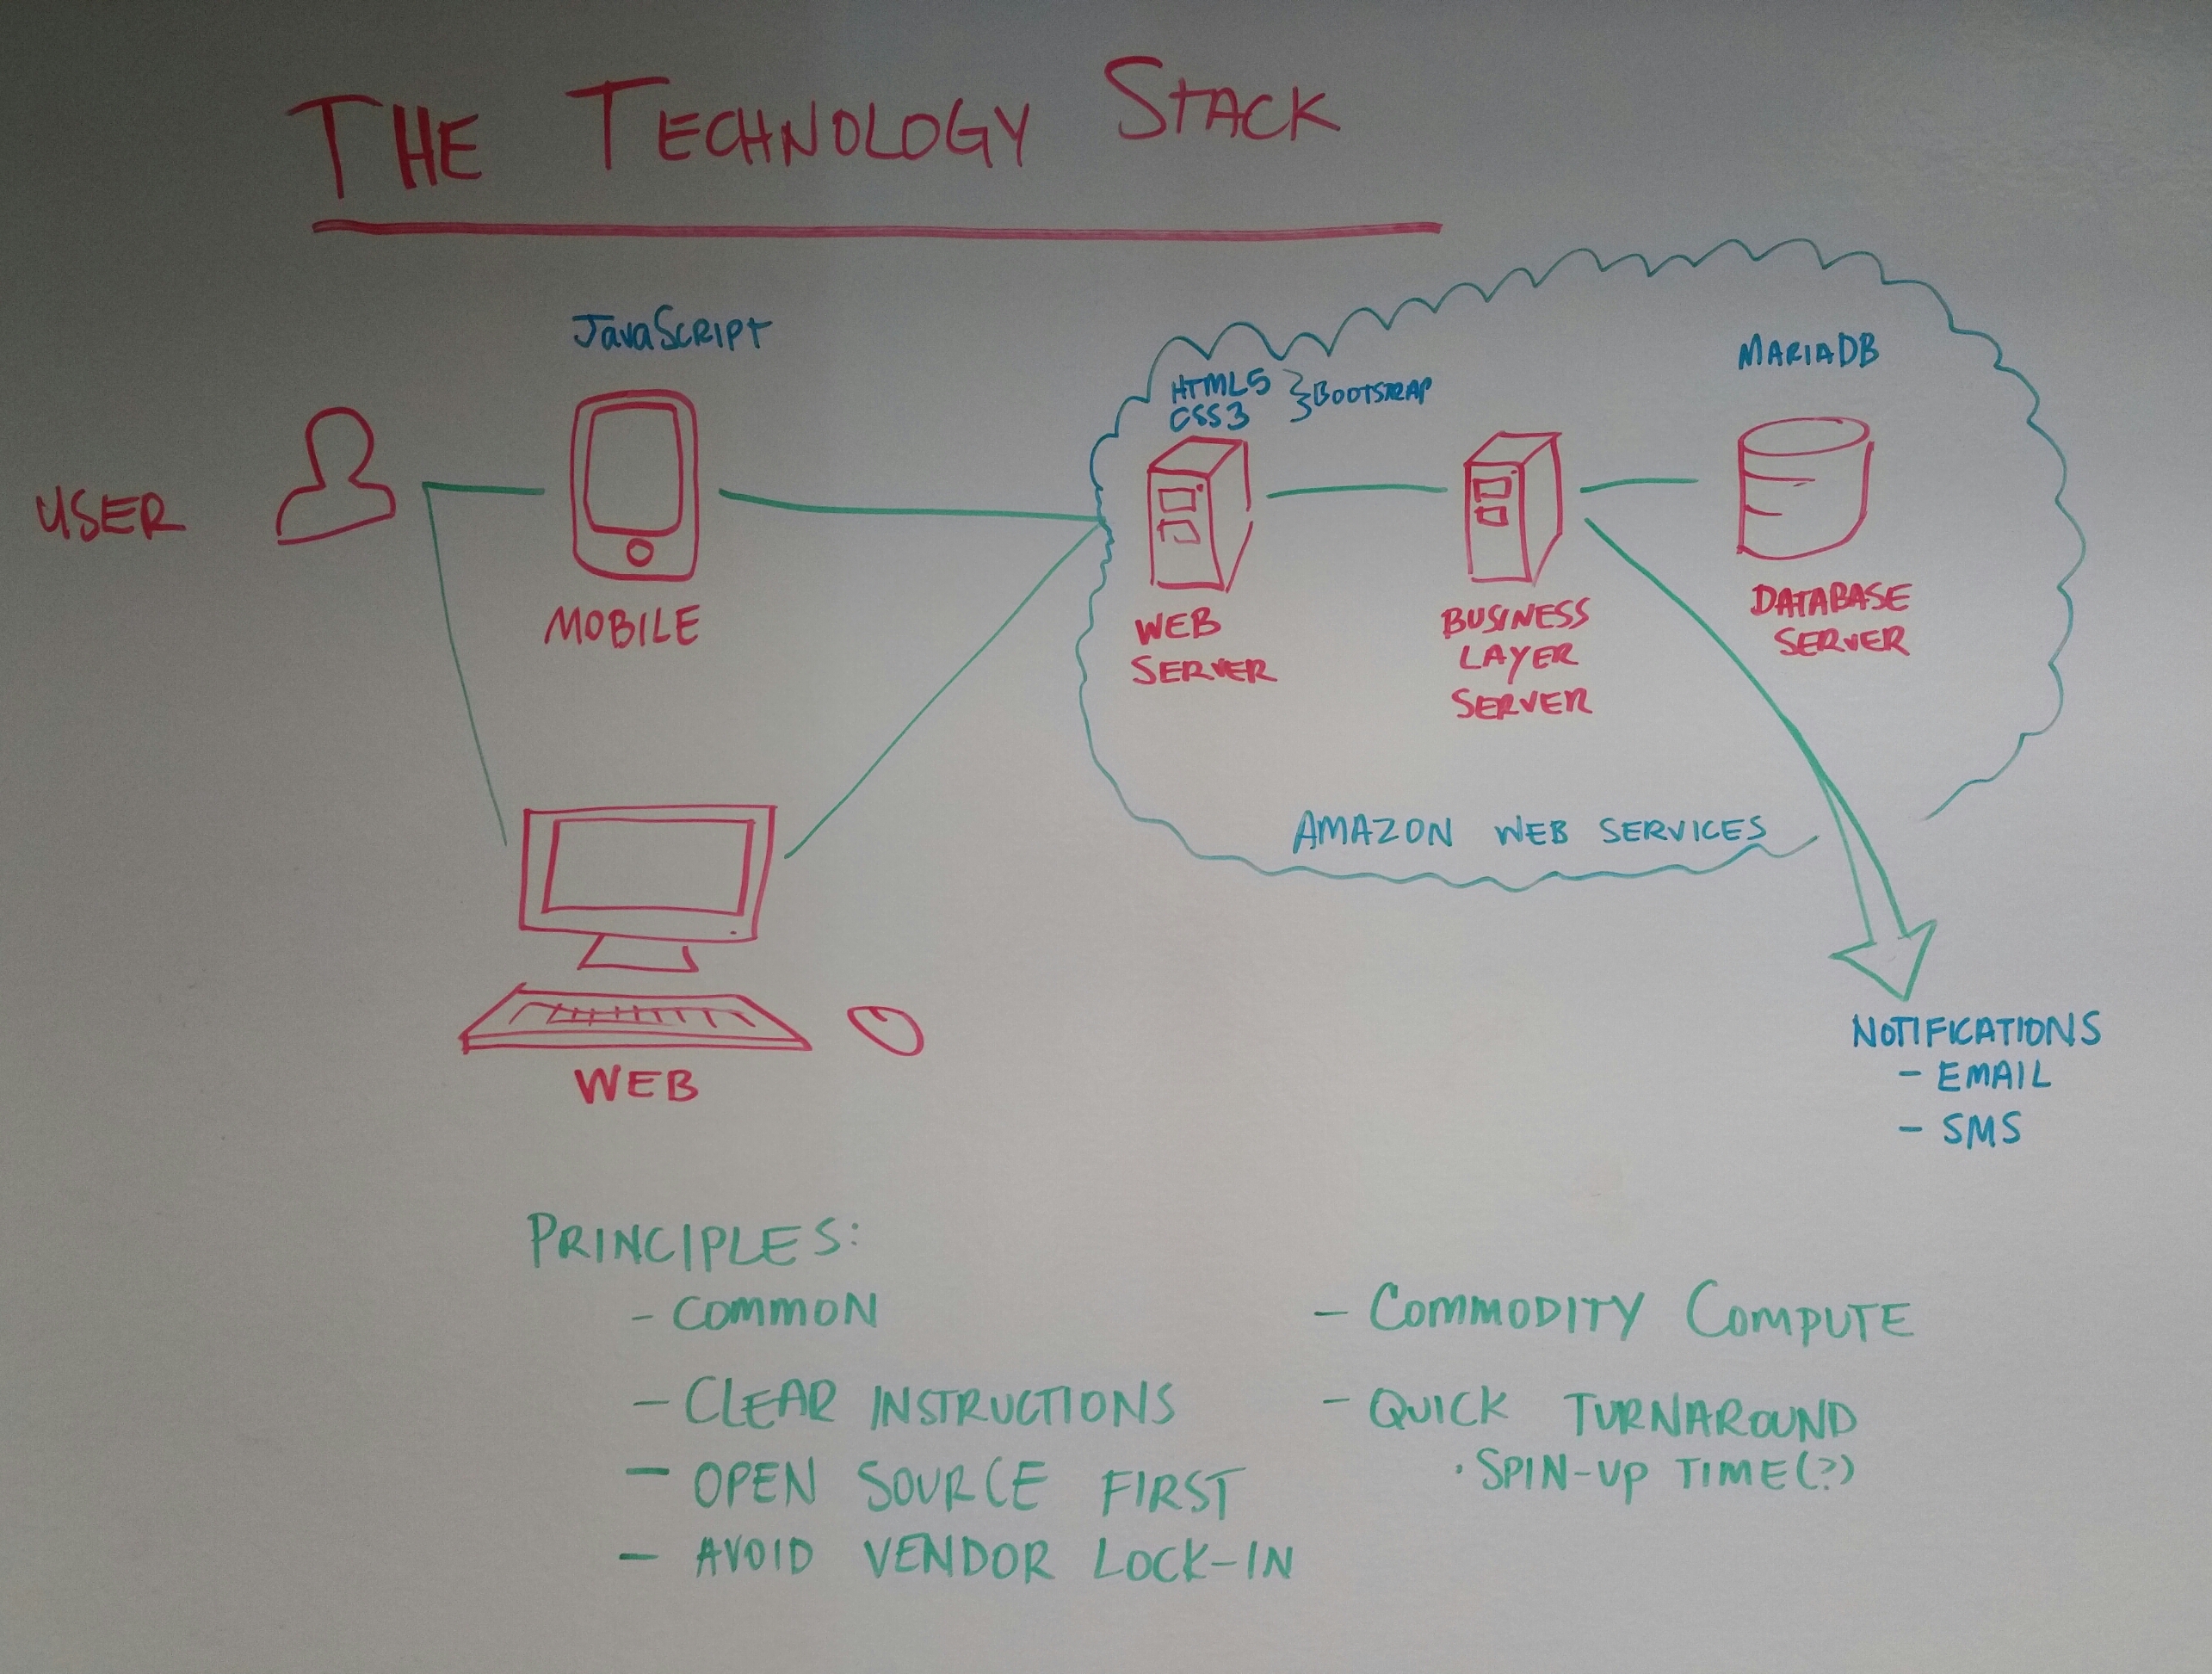 THE TECHNOLOGY STACK
JavaScript
HTML5
CSS3
} BOOTSTRAP
MARIADB
USER
MOBILE
WEB
SERVER
BUSINESS
LAYER
SERVER
DATABASE
SERVER
AMAZON WEB SERVICES
WEB
NOTIFICATIONS
- EMAIL
- SMS
PRINCIPLES:
- COMMON
- CLEAR INSTRUCTIONS
- OPEN SOURCE FIRST
- AVOID VENDOR LOCK-IN
- COMMODITY COMPUTE
- QUICK TURNAROUND
· SPIN-UP TIME(?)